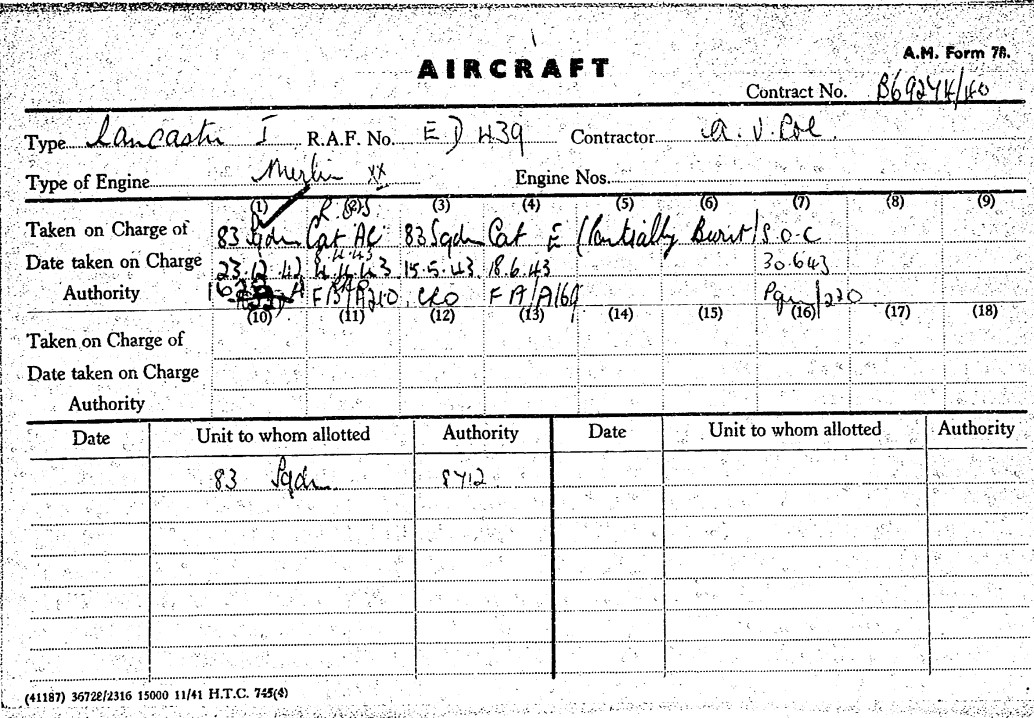 A.M. Form 78.
AIRCRAFT
Contract No. B69274/40
Type Lancaster I R.A.F. No. ED 439 Contractor A. V. Roe.
Type of Engine Merlin XX Engine Nos.
(1) (2) (3) (4) (5) (6) (7) (8) (9)
Taken on Charge of 83 Sqdn Cat AC 83 Sqdn Cat E (Partially Burnt) S.O.C
8.4.43
Date taken on Charge 23.12.42 4.4.43 15.5.43 18.6.43 30.6.43
Authority FB/A210. CRO FA/A169 /220
(10) (11) (12) (13) (14) (15) (16) (17) (18)
Taken on Charge of
Date taken on Charge
Authority
Date Unit to whom allotted Authority Date Unit to whom allotted Authority
83 Sqdn 8412
(41187) 36728/2316 15000 11/41 H.T.C. 745(4)